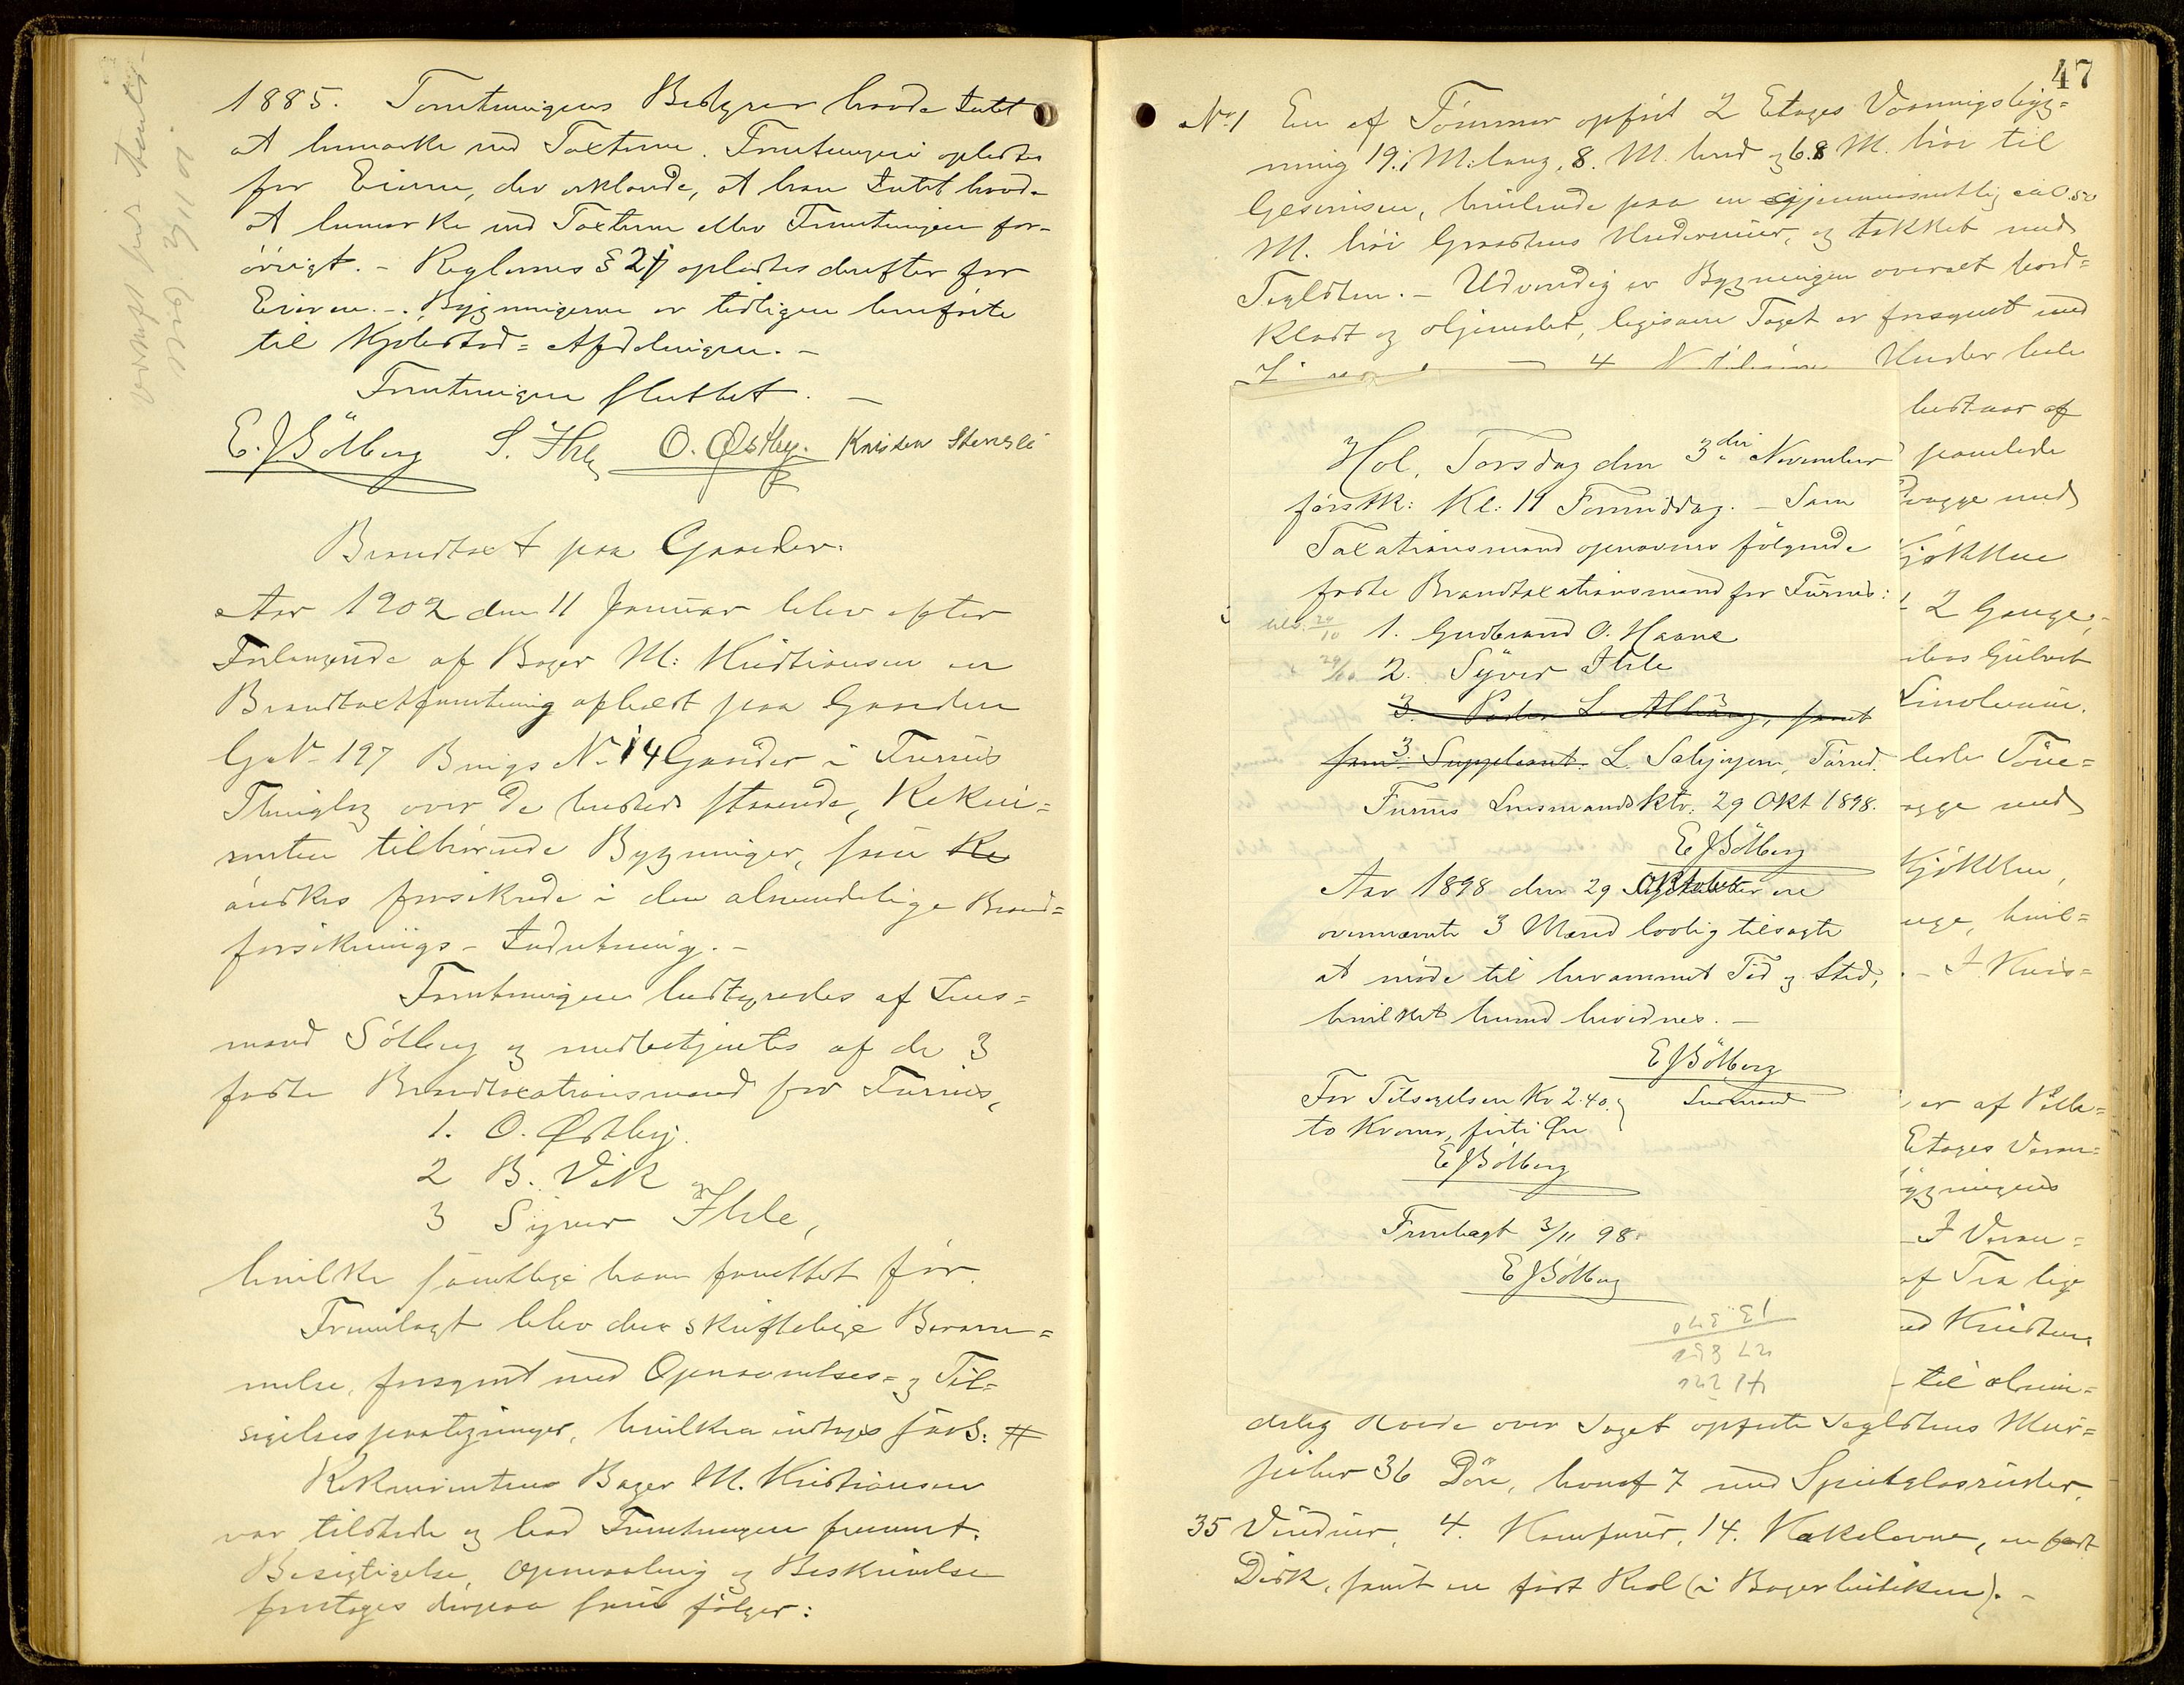 1885. Forretningens Bestyrer havde Intet
at bemærke ved Taxterne. Forretningen oplæstes
for Eieren, der erklærede, at han Intet havde
at bemærke ved Taxterne eller Forretningen for-
övrigt. - Reglernes § 24 oplæstes derefter for
Eieren. - Bygningerne er tidligere henförte
til Kjöbstad-Afdelingen. -
Forretningen sluttet. -
E. J Sölberg S. Ihle O. Østby. Kristen Stensli
Brandtaxt paa Gaarder.
Aar 1902 den 11 Januar blev efter
Forlangende af Bager M: Kristiansen en
Brandtaxtforretning afholdt paa Gaarden
G. No 197 Brugs No 14 Gaarder i Furnes
Thinglag over de bestedsstaaende, Rekvi=
renten tilhörende Bygninger, som Re
önskes forsikrede i den almindelige Brand=
forsikrings-Indretning. -
Forretningen bestyredes af Lens=
mand Sölberg og medbetjentes af de 3
faste Brandtaxationsmænd for Furnes,
1. O. Østby.
2 B. Vik og
3 Syver Ihle,
hvilke samtlige have forrettet för.
Fremlagt blev den skriftlige Beram=
melse, forsynet med Opnævnelses= og Til=
sigelsespaategninger, hvilken indtages saal: #
Rekvirenten Bager M. Kristiansen
var tilstede og bad Forretningen fremmet.
Besigtigelse, Opmaaling og Beskrivelse
foretoges derpaa som fölger:
47
No 1 En af Tömmer opfört 2 Etages Vaaningsbyg=
ning 19.1 M. lang, 8. M. bred og 6.8 M. höi til
Gesimsen, hvilende paa en gjennemsnitlig ca 0.50
M. höi Graastens Undermur, og tækket med
Teglsten. - Udvendig er Bygningen overalt bord=
klædt og oljemalet, ligesom Taget er forsynet med
Under hele
bestaar af
panelede
Vægge med
Kjökken
2 Gange,
Gulvet
Linoleum.
Hol, Torsdag den 3die November
förstk: Kl: 11 Formiddag. - Som
Taxationsmænd opnævnes fölgende
faste Brandtaxationsmænd for Furnes:
1. Gudbrand O. Haave
2. Syver Ihle
3. Peder L. Alhaug, samt
som Suppleant. 3. L. Schjøyen, Furnes.
Furnes Lensmandsktr. 29 Okt 1898.
E J Sölberg
Aar 1898 den 29 Oktober ere
ovennævnte 3 Mænd lovlig tilsagte
at möde til berammet Tid og Sted,
hvilket herved bevidnes. -
E J Sölberg
Lensmand
For Tilsigelsen Kr 2.40.
to Kroner, firti Øre
E J Sölberg
Fremlagt 3/11 98.
E J Sölberg
lede Töm=
vægge med
Kjökken,
hvil=
- I Kvis=
er af Pille=
Etages Veran=
Bygningens
- I Veran=
af Træ lige
til almin=
delig Höide over Taget opförte Teglstens Mur=
piber 36 Döre, hvoraf 7 med Speilglasruder,
35 Vinduer, 4. Komfurer, 14. Kakelovne, en fast
Disk, samt en fast Reol (i Bagerbutiken). -